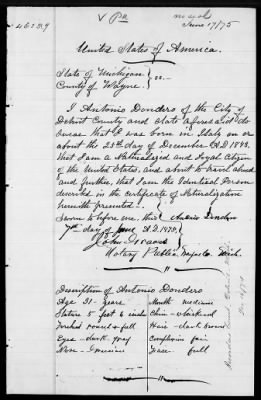 46159
June 17/75
United States of America.
State of Michigan
County of Wayne. } ss.
I Antonio Dondero of the City of
Detroit County and State aforesaid do
swear that I was born in Italy on or
about the 25th day of December A.D. 1843.
that I am a Naturalized and Loyal Citizen
of the United States, and about to travel abroad
and further, that I am the Identical Person
described in the Certificate of Naturalization
herewith presented.
Sworn to before me this
7th day of June A.D. 1875.
Notary Public, Wayne Co. Mich.
Description of Antonio Dondero
Age 31- years Mouth medium
Stature 5 feet 6 inch Chin
Forehead round & full Hair dark brown
Eyes dark gray Complexion fair
Nose Face full